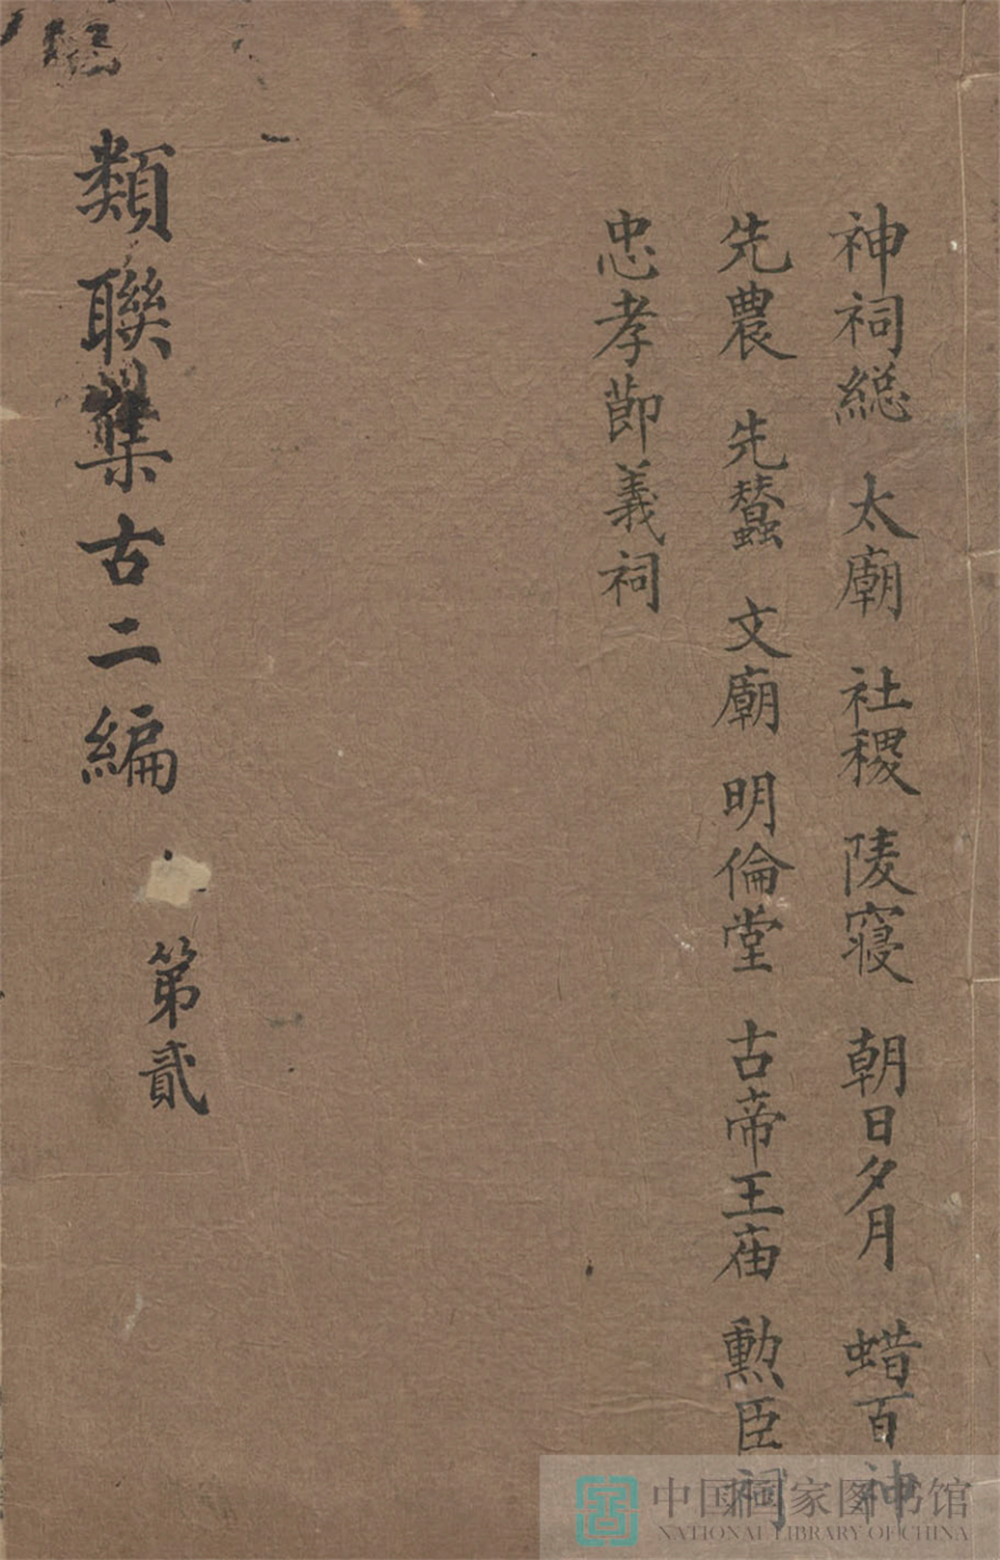 神祠総 太廟 社稷 陵寝 朝日夕月 蜡百神
先農 先蠶 文廟 明倫堂 古帝王庙 勲臣祠
忠孝節義祠
類聯集古二編
第貳
中国国家图书馆
NATIONAL LIBRARY OF CHINA